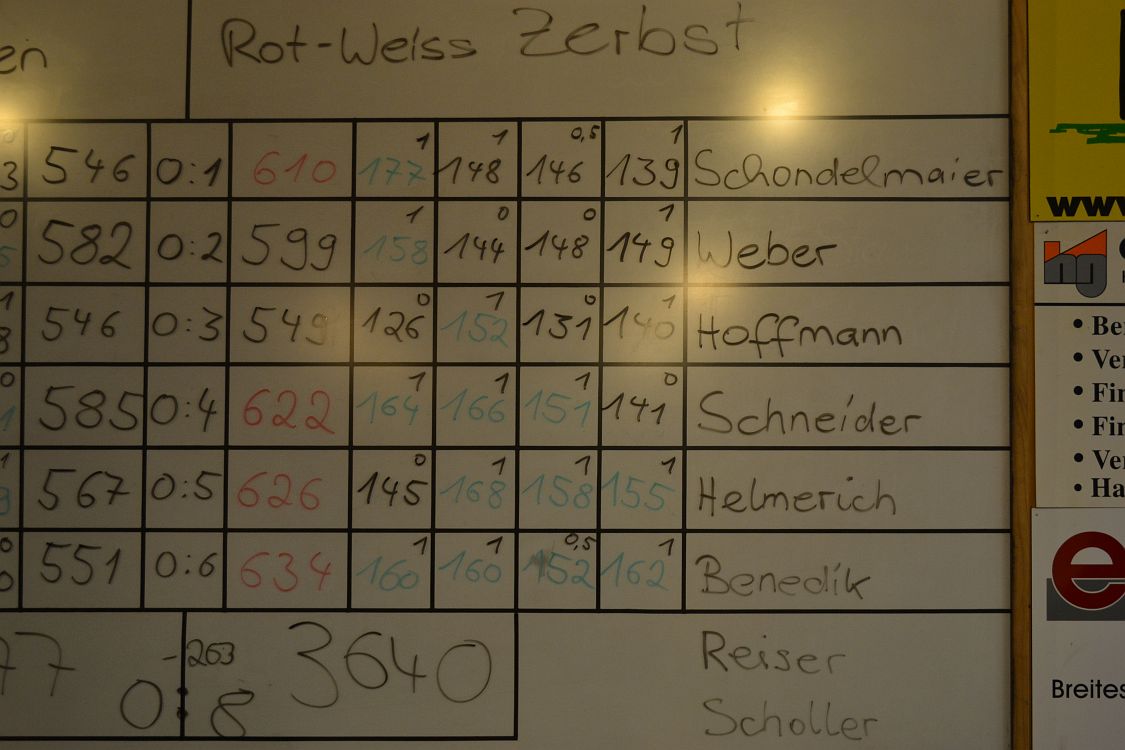 en Rot-Weiss Zerbst
1 1 0,5 1
3 546 0:1 610 177 148 146 139 Schondelmaier
0 1 0 0 1
5 582 0:2 599 158 144 148 149 Weber
1 0 1 0 1
8 546 0:3 549 126 152 131 140 Hoffmann
0 1 1 1 0
1 585 0:4 622 164 166 151 141 Schneider
1 0 1 1 1
9 567 0:5 626 145 168 158 155 Helmerich
0 1 1 0,5 1
0 551 0:6 634 160 160 152 162 Benedik
77 -263 3640 Reiser
0:8 Scholler
www
• Be
• Ver
• Fin
• Fin
• Ver
• Ha
e
Breites